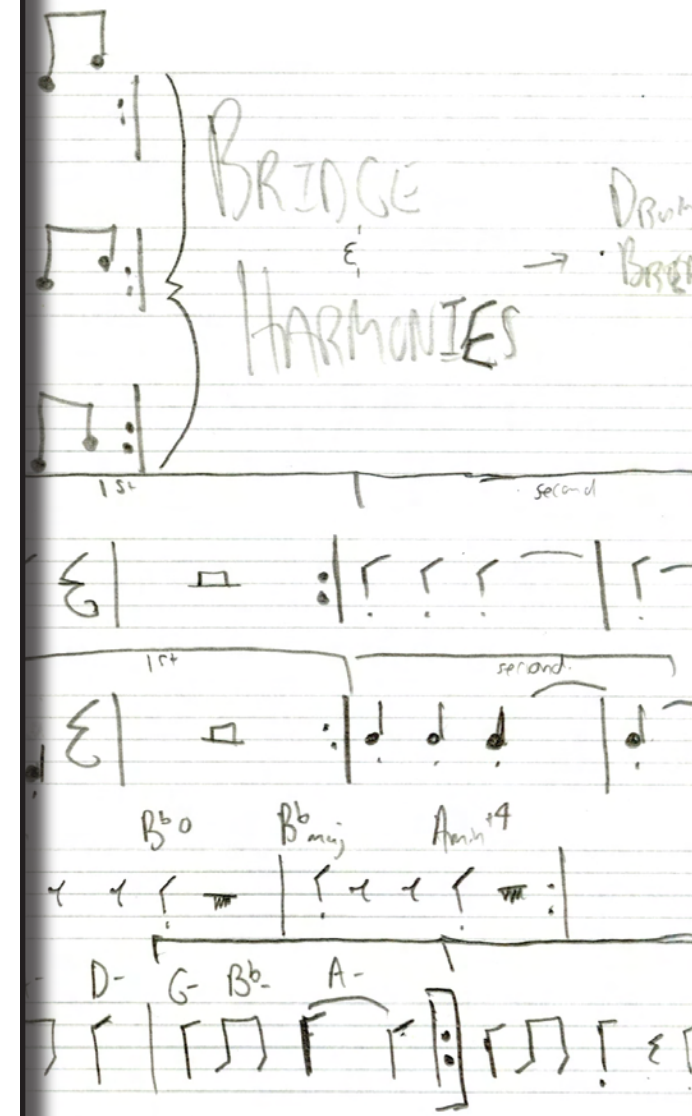 BRIDGE
&
HARMONIES
1st second
1st second
B♭o B♭maj Amin+4
D- G- B♭- A-